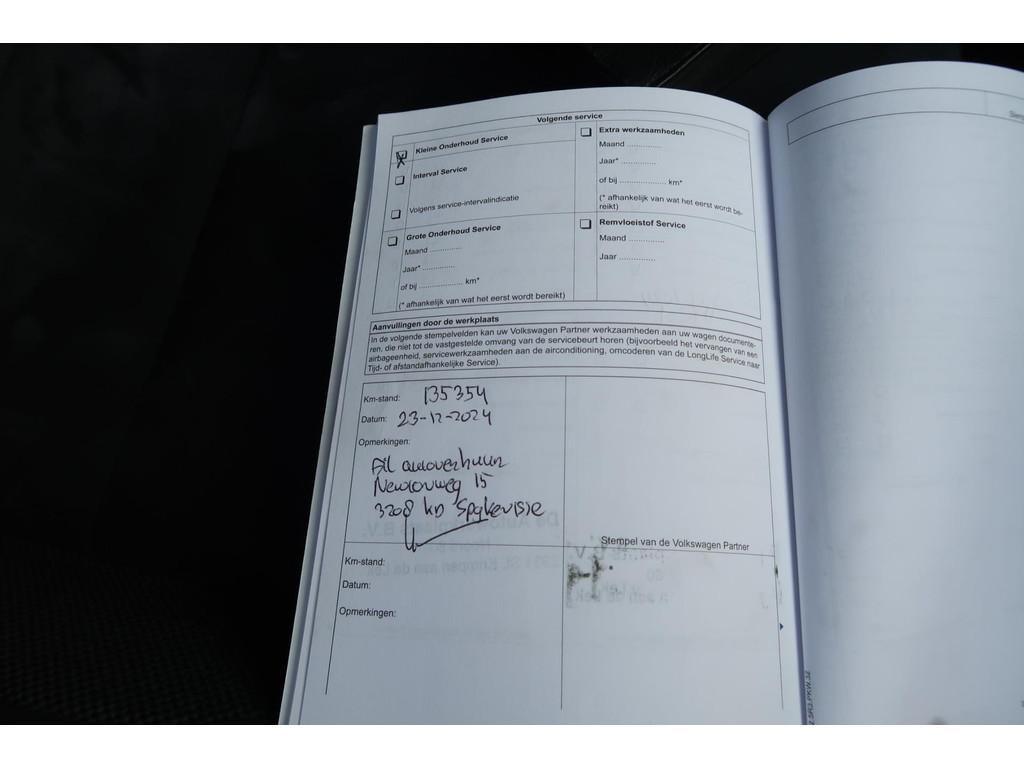 Volgende service
Kleine Onderhoud Service
Interval Service
Volgens service-intervalindicatie
Grote Onderhoud Service
Maand ..............
Jaar* ..............
of bij ................... km*
(* afhankelijk van wat het eerst wordt bereikt)
Extra werkzaamheden
Maand ..............
Jaar* ..............
of bij ................... km*
(* afhankelijk van wat het eerst wordt be-
reikt)
Remvloeistof Service
Maand ..............
Jaar ..............
Aanvullingen door de werkplaats
In de volgende stempelvelden kan uw Volkswagen Partner werkzaamheden aan uw wagen documente-
ren, die niet tot de vastgestelde omvang van de servicebeurt horen (bijvoorbeeld het vervangen van een
airbageenheid, servicewerkzaamheden aan de airconditioning, omcoderen van de LongLife Service naar
Tijd- of afstandafhankelijke Service).
Km-stand: 135354
Datum: 23-12-2024
Opmerkingen:
All autoverhuur
Newtonweg 15
3208 KD Spijkenisse
Stempel van de Volkswagen Partner
Km-stand:
Datum:
Opmerkingen: